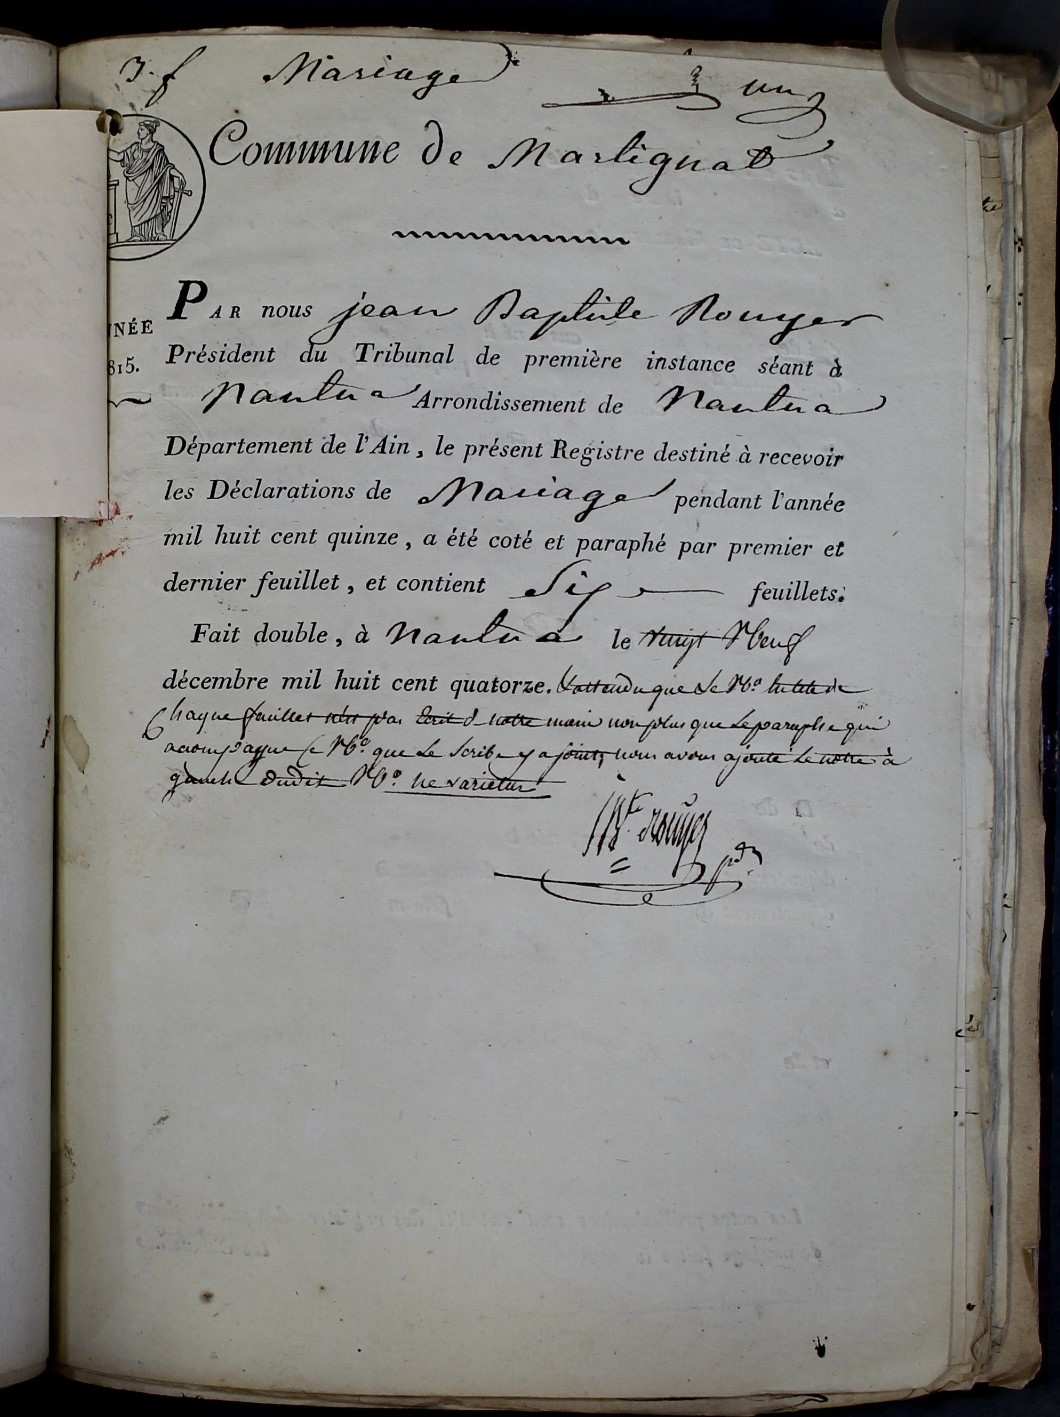 3. f Mariage un
Commune de Martignat
NÉE
815.
PAR nous jean Baptiste Rouyer
Président du Tribunal de première instance séant à
Nantua Arrondissement de Nantua
Département de l'Ain, le présent Registre destiné à recevoir
les Déclarations de Mariage pendant l'année
mil huit cent quinze, a été coté et paraphé par premier et
dernier feuillet, et contient Six feuillets.
Fait double, à Nantua le vingt Neuf
décembre mil huit cent quatorze. attendu que le N.o de
Chaque feuillet n'est pas Ecrit de notre main non plus que le paraphe qui
accompagne ce N.o que le Scribe y a joint, nous avons ajouté le notre à
gauche dudit N.o ne varietur
JB.te Rouyer
p.dt